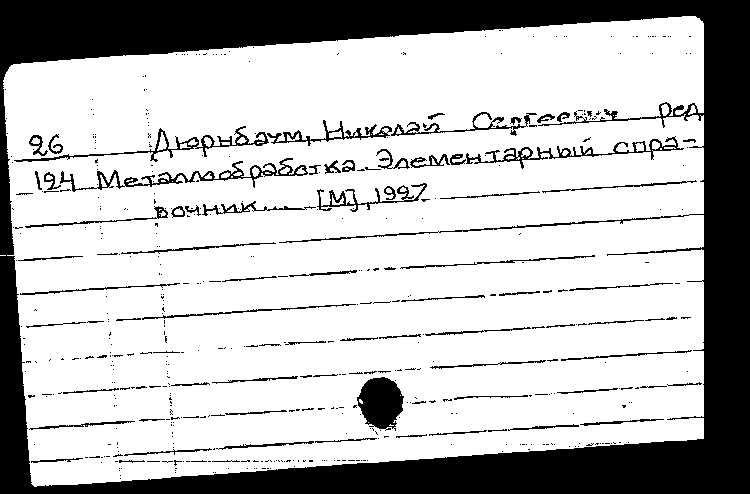 26 Дюрнбаум, Николай Сергеевич ред
124 Металлообработка. Элементарный спра-
вочник... [М], 1927